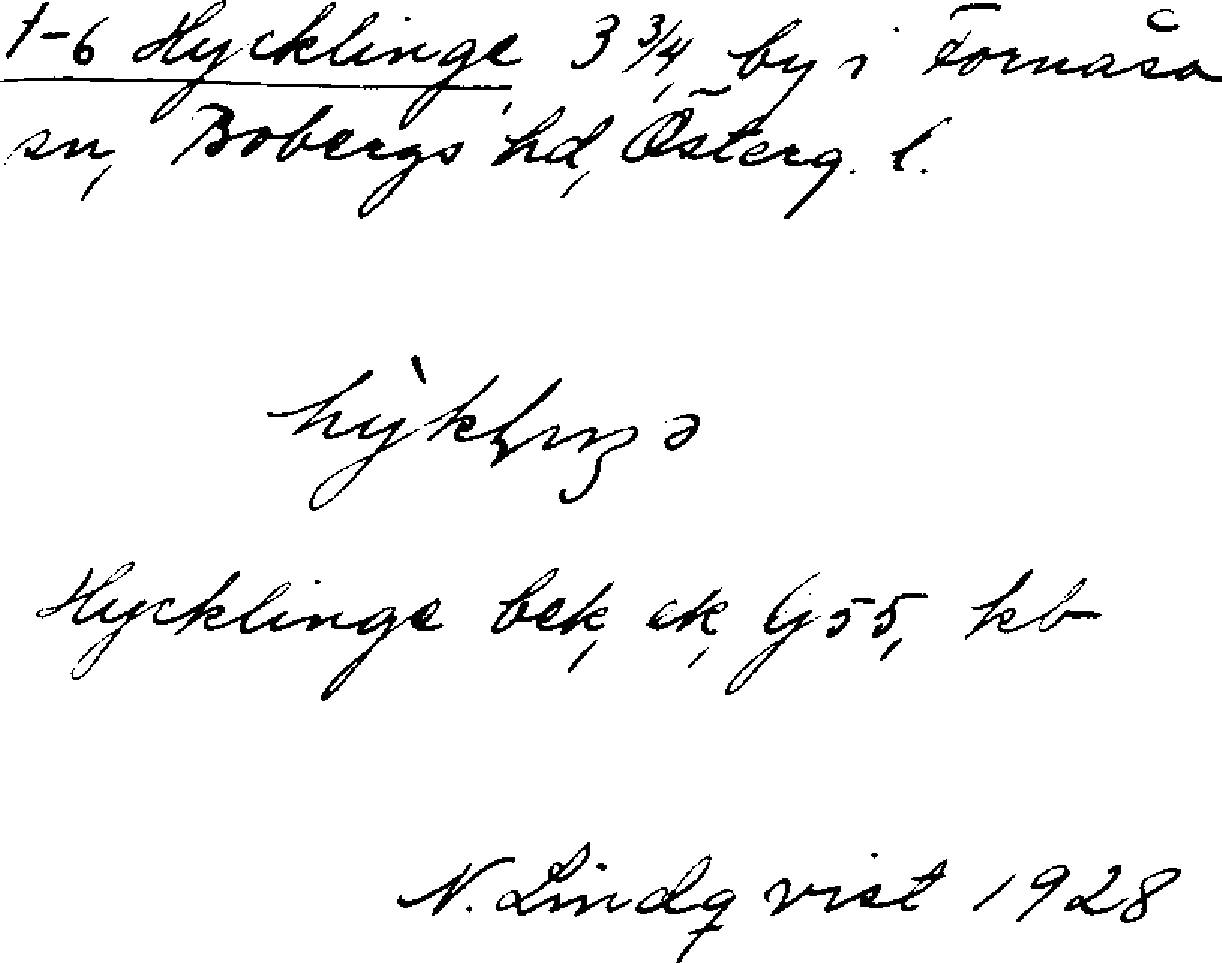 1-6 Hycklinge 3 3/4, by i Fornåsa
sn, Bobergs hd, Österg. l.
Hycklinge bek, ek, Gj 55, kb
N. Lindqvist 1928